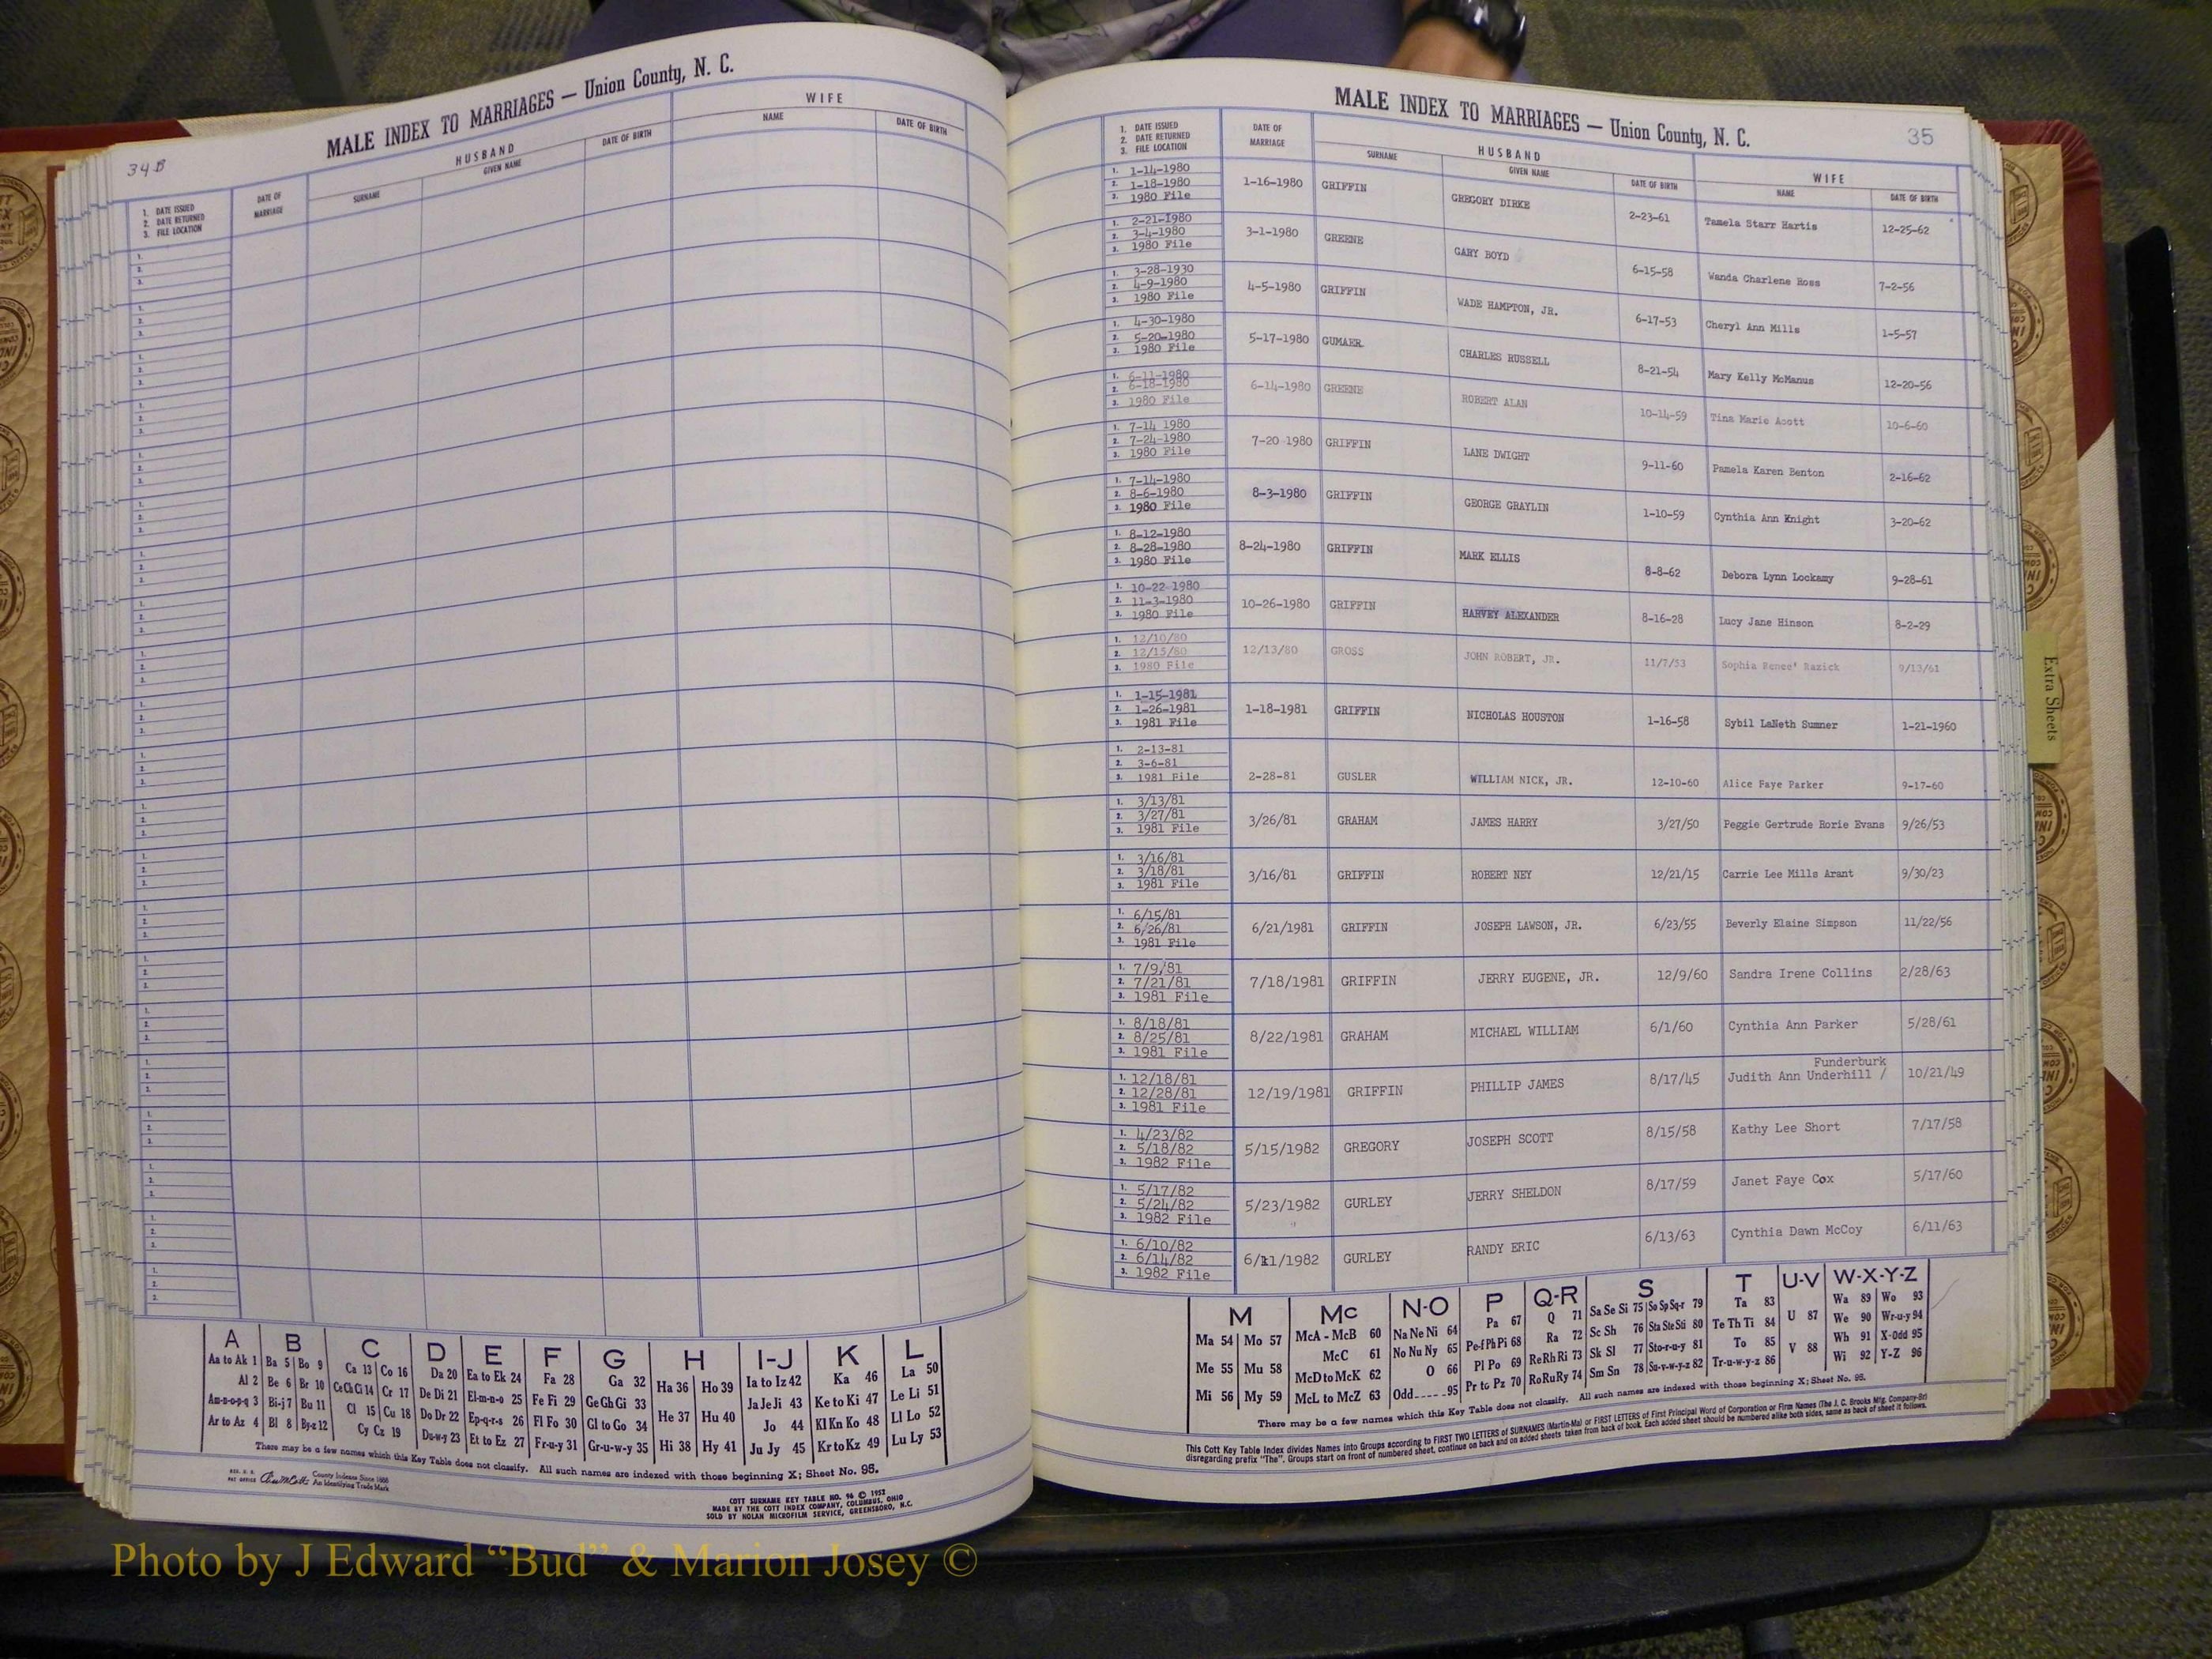 34B
MALE INDEX TO MARRIAGES — Union County, N. C.
HUSBAND
WIFE
1. DATE ISSUED
2. DATE RETURNED
3. FILE LOCATION
DATE OF MARRIAGE
SURNAME
GIVEN NAME
DATE OF BIRTH
NAME
DATE OF BIRTH
A B C D E F G H I-J K L
Aa to Ak 1 Ba 5 Bo 9 Ca 13 Co 16 Da 20 Ea to Ek 24 Fa 28 Ga 32 Ha 36 Ho 39 Ia to Iz 42 Ka 46 La 50
Al 2 Be 6 Br 10 Ce Ch Ci 14 Cr 17 De Di 21 El-m-n-o 25 Fe Fi 29 Ge Gh Gi 33 He 37 Hu 40 Ja Je Ji 43 Ke to Ki 47 Le Li 51
Am-n-o-p-q 3 Bi-j 7 Bu 11 Cl 15 Cu 18 Do Dr 22 Ep-q-r-s 26 Fl Fo 30 Gl to Go 34 Hi 38 Hy 41 Jo 44 Kl Kn Ko 48 Ll Lo 52
Ar to Az 4 Bl 8 By-z 12 Cy Cz 19 Du-w-y 23 Et to Ez 27 Fr-u-y 31 Gr-u-w-y 35 Ju Jy 45 Kr to Kz 49 Lu Ly 53
There may be a few names which this Key Table does not classify. All such names are indexed with those beginning X; Sheet No. 95.
County Indexes Since 1888
An Identifying Trade Mark
COTT SURNAME KEY TABLE NO. 96 © 1952
MADE BY THE COTT INDEX COMPANY, COLUMBUS, OHIO
SOLD BY NOLAN MICROFILM SERVICE, GREENSBORO, N.C.
MALE INDEX TO MARRIAGES — Union County, N. C.
35
1. DATE ISSUED
2. DATE RETURNED
3. FILE LOCATION
DATE OF MARRIAGE
HUSBAND
SURNAME
GIVEN NAME
DATE OF BIRTH
WIFE
NAME
DATE OF BIRTH
1. 1-14-1980
2. 1-18-1980
3. 1980 File
1-16-1980 GRIFFIN GREGORY DIRKE 2-23-61 Tamela Starr Hartis 12-25-62
1. 2-21-1980
2. 3-4-1980
3. 1980 File
3-1-1980 GREENE GARY BOYD 6-15-58 Wanda Charlene Ross 7-2-56
1. 3-28-1930
2. 4-9-1980
3. 1980 File
4-5-1980 GRIFFIN WADE HAMPTON, JR. 6-17-53 Cheryl Ann Mills 1-5-57
1. 4-30-1980
2. 5-20-1980
3. 1980 File
5-17-1980 GUMAER CHARLES RUSSELL 8-21-54 Mary Kelly McManus 12-20-56
1. 6-11-1980
2. 6-18-1980
3. 1980 File
6-14-1980 GREENE ROBERT ALAN 10-14-59 Tina Marie 10-6-60
1. 7-14 1980
2. 7-24-1980
3. 1980 File
7-20 1980 GRIFFIN LANE DWIGHT 9-11-60 Pamela Karen Benton 2-16-62
1. 7-14-1980
2. 8-6-1980
3. 1980 File
8-3-1980 GRIFFIN GEORGE GRAYLIN 1-10-59 Cynthia Ann Knight 3-20-62
1. 8-12-1980
2. 8-28-1980
3. 1980 File
8-24-1980 GRIFFIN MARK ELLIS 8-8-62 Debora Lynn Lockamy 9-28-61
1. 10-22-1980
2. 11-3-1980
3. 1980 File
10-26-1980 GRIFFIN HARVEY ALEXANDER 8-16-28 Lucy Jane Hinson 8-2-29
1. 12/10/80
2. 12/15/80
3. 1980 File
12/13/80 GROSS JOHN ROBERT, JR. 11/7/53 Sophia Renee' Razick 9/13/61
1. 1-15-1981
2. 1-26-1981
3. 1981 File
1-18-1981 GRIFFIN NICHOLAS HOUSTON 1-16-58 Sybil LaNeth Sumner 1-21-1960
1. 2-13-81
2. 3-6-81
3. 1981 File
2-28-81 GUSLER WILLIAM NICK, JR. 12-10-60 Alice Faye Parker 9-17-60
1. 3/13/81
2. 3/27/81
3. 1981 File
3/26/81 GRAHAM JAMES HARRY 3/27/50 Peggie Gertrude Rorie Evans 9/26/53
1. 3/16/81
2. 3/18/81
3. 1981 File
3/16/81 GRIFFIN ROBERT NEY 12/21/15 Carrie Lee Mills Arant 9/30/23
1. 6/15/81
2. 6/26/81
3. 1981 File
6/21/1981 GRIFFIN JOSEPH LAWSON, JR. 6/23/55 Beverly Elaine Simpson 11/22/56
1. 7/9/81
2. 7/21/81
3. 1981 File
7/18/1981 GRIFFIN JERRY EUGENE, JR. 12/9/60 Sandra Irene Collins 2/28/63
1. 8/18/81
2. 8/25/81
3. 1981 File
8/22/1981 GRAHAM MICHAEL WILLIAM 6/1/60 Cynthia Ann Parker 5/28/61
1. 12/18/81
2. 12/28/81
3. 1981 File
Funderburk
12/19/1981 GRIFFIN PHILLIP JAMES 8/17/45 Judith Ann Underhill / 10/21/49
1. 4/23/82
2. 5/18/82
3. 1982 File
5/15/1982 GREGORY JOSEPH SCOTT 8/15/58 Kathy Lee Short 7/17/58
1. 5/17/82
2. 5/24/82
3. 1982 File
5/23/1982 GURLEY JERRY SHELDON 8/17/59 Janet Faye Cox 5/17/60
"
1. 6/10/82
2. 6/14/82
3. 1982 File
6/11/1982 GURLEY RANDY ERIC 6/13/63 Cynthia Dawn McCoy 6/11/63
M Mc N-O P Q-R S T U-V W-X-Y-Z
Ma 54 Mo 57 McA - McB 60 Na Ne Ni 64 Pa 67 Q 71 Sa Se Si 75 So Sp Sq-r 79 Ta 83 U 87 Wa 89 Wo 93
Me 55 Mu 58 McC 61 No Nu Ny 65 Pe-f Ph Pi 68 Ra 72 Sc Sh 76 Sta Ste Sti 80 Te Th Ti 84 V 88 We 90 Wr-u-y 94
Mi 56 My 59 McD to McK 62 O 66 Pl Po 69 Re Rh Ri 73 Sk Sl 77 Sto-r-u-y 81 To 85 Wh 91 X-Odd 95
McL to McZ 63 Odd 95 Pr to Pz 70 Ro Ru Ry 74 Sm Sn 78 Su-v-w-y-z 82 Tr-u-w-y-z 86 Wi 92 Y-Z 96
There may be a few names which this Key Table does not classify. All such names are indexed with those beginning X; Sheet No. 95.
This Cott Key Table Index divides Names into Groups according to FIRST TWO LETTERS of SURNAMES (Martin-Ma) or FIRST LETTERS of First Principal Word of Corporation or Firm Names (The J. C. Brooks Mfg. Company-Br)
disregarding prefix "The". Groups start on front of numbered sheet, continue on back and on added sheets taken from back of book. Each added sheet should be numbered alike both sides, same as back of sheet it follows.
Extra Sheets
Photo by J Edward “Bud” & Marion Josey ©